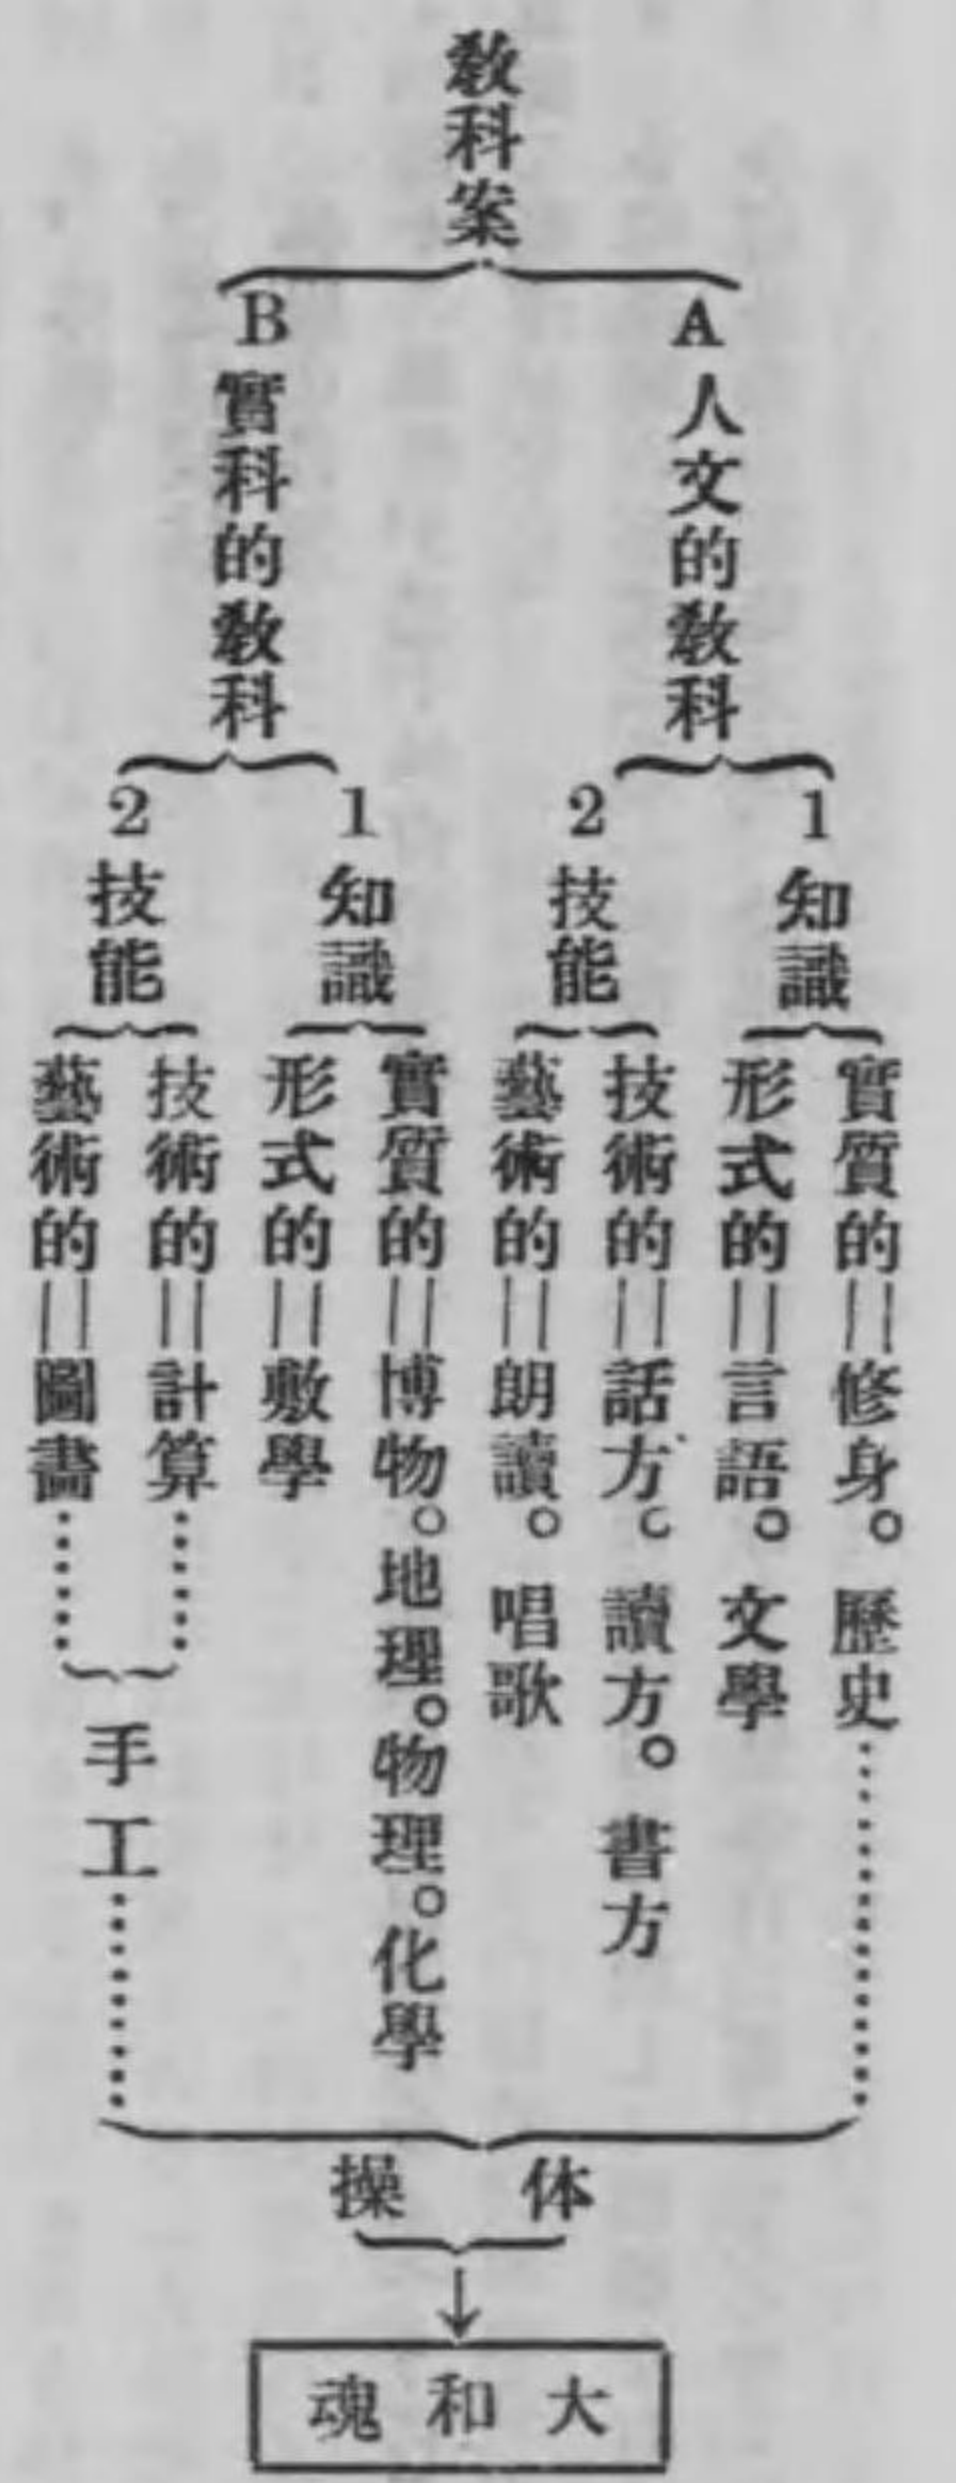 敎科案
A 人文的敎科
1 知識
實質的＝修身。歷史
形式的＝言語。文學
2 技能
技術的＝話方。讀方。書方
藝術的＝朗讀。唱歌
B 實科的敎科
1 知識
實質的＝博物。地理。物理。化學
形式的＝數學
2 技能
技術的＝計算
藝術的＝圖畵
手工
体操
大和魂